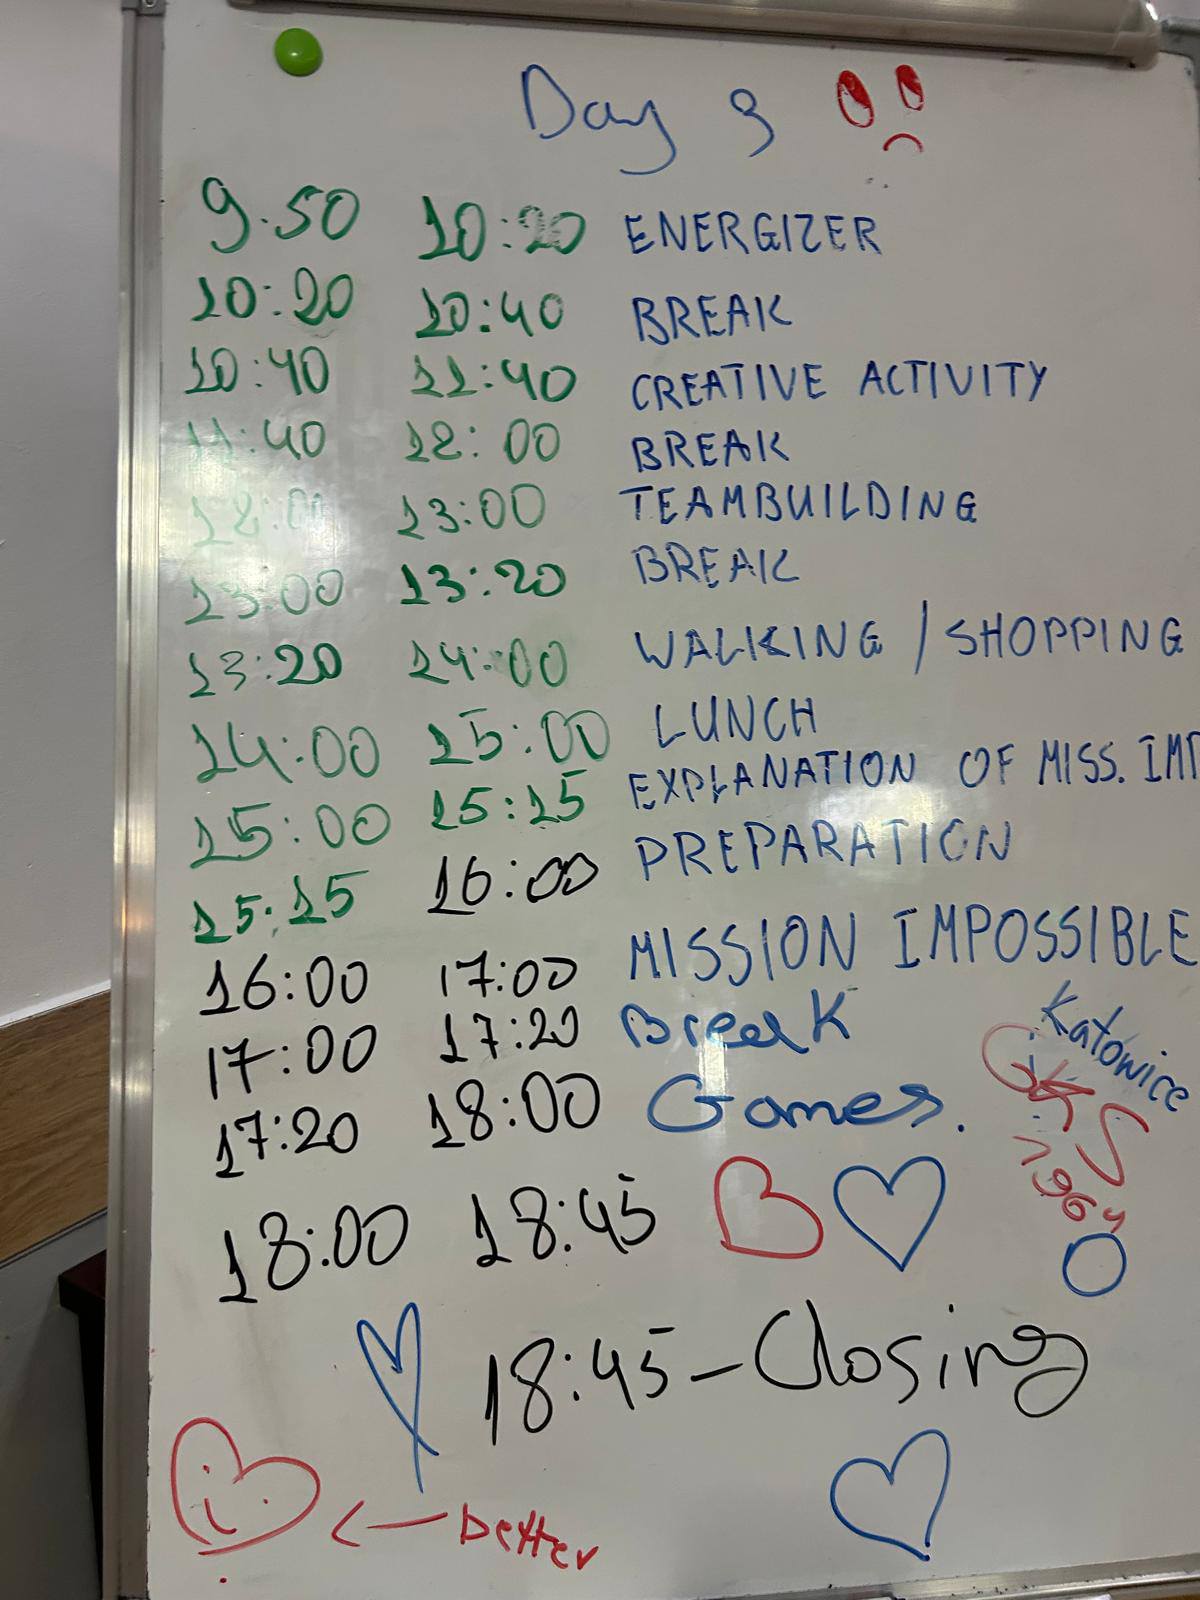 Day 3
9.50 10:20 ENERGIZER
10:20 10:40 BREAK
10:40 11:40 CREATIVE ACTIVITY
11:40 12:00 BREAK
12:00 13:00 TEAMBUILDING
13:00 13:20 BREAK
13:20 14:00 WALKING / SHOPPING
14:00 15:00 LUNCH
15:00 15:15 EXPLANATION OF MISS. IMP
15:15 16:00 PREPARATION
16:00 17:00 MISSION IMPOSSIBLE
17:00 17:20 Break
17:20 18:00 Games.
Katowice
GKS
1964
18:00 18:45
18:45 - Closing
better